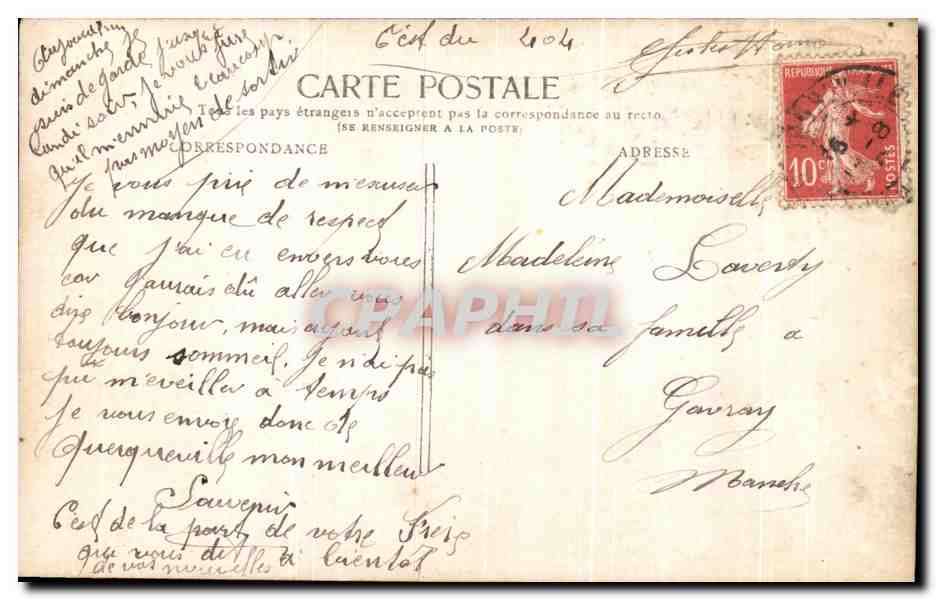 Aujourd'hui
dimanche je
suis de garde jusqu'à
Lundi soir, je vous jure
qu'il m'ennuie beaucoup
pas moyen de sortir
C'est du 404
CARTE POSTALE
Tous les pays étrangers n'acceptent pas la correspondance au recto.
(SE RENSEIGNER A LA POSTE)
CORRESPONDANCE
ADRESSE
REPUBLIQUE
10c
POSTES
Je vous prie de m'excuser
du manque de respect
que j'ai eu envers vous
car j'aurais dû aller vous
dire bonjour, mais ayant
toujours sommeil, Je n'ai pas
pu m'éveiller à temps
Je vous envoye donc de
Querqueville mon meilleur
Souvenir
C'est de la part de votre Frère
qui vous dit à bientôt
de vos nouvelles
Mademoiselle
Madeleine Laverty
dans sa famille a
Gavray
Manche
CPAPHIL